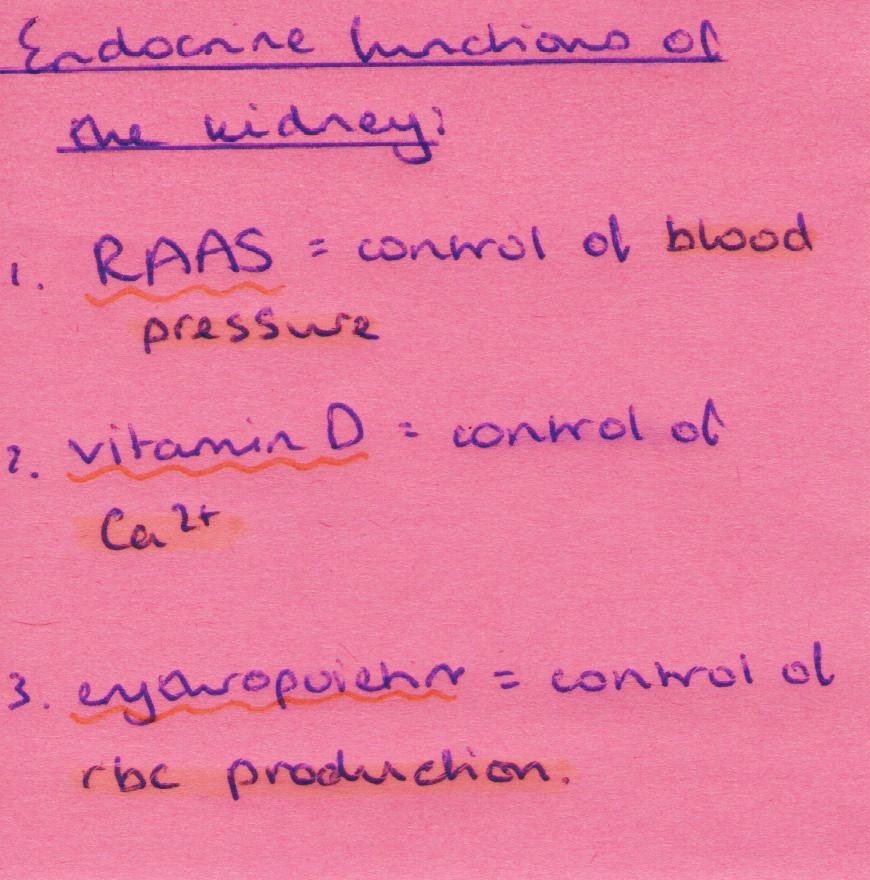 Endocrine functions of
the kidney:
1. RAAS = control of blood
pressure
2. vitamin D = control of
Ca²⁺
3. erythropoietin = control of
rbc production.